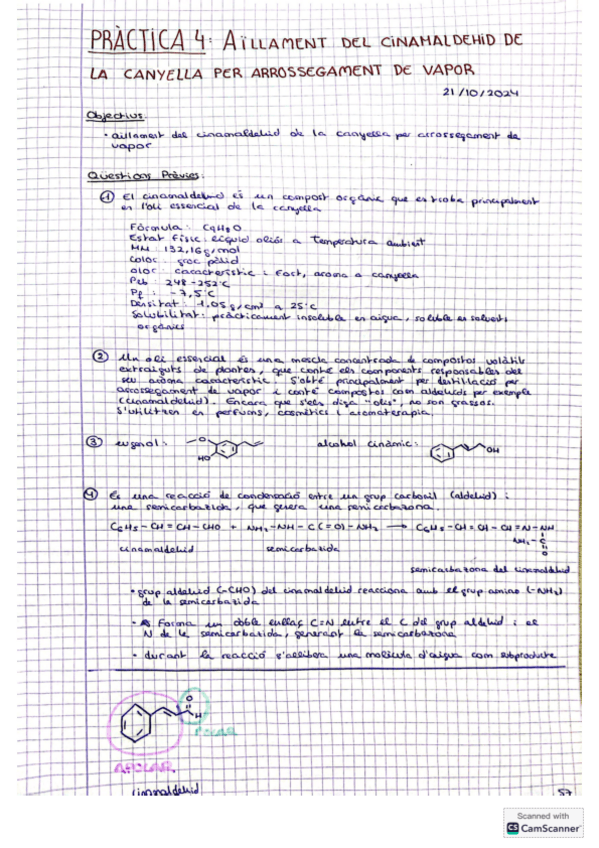 PRÀCTICA 4: AÏLLAMENT DEL CINAMALDEHID DE
LA CANYELLA PER ARROSSEGAMENT DE VAPOR
21/10/2024
Objectius
· aïllament del cinamaldehid de la canyella per arrossegament de
vapor
Qüestions Prèvies:
① El cinamaldehid és un compost orgànic que es troba principalment
en l'oli essencial de la canyella
Fórmula: C9H8O
Estat físic: líquid oliós a temperatura ambient
MM: 132,16 g/mol
color: groc pàl·lid
olor: característic i fort, aroma a canyella
Peb: 248-252°C
Pf: -7,5°C
Densitat: 1,05 g/cm³ a 25°C
Solubilitat: pràcticament insoluble en aigua, soluble en solvents
orgànics
② Un oli essencial és una mescla concentrada de compostos volàtils
extraiguts de plantes, que conté els components responsables del
seu aroma característic. S'obté principalment per destil·lació per
arrossegament de vapor i conté compostos com aldehids per exemple
(cinamaldehid). Encara que s'els digui "olis", no son grassos.
S'utilitzen en perfums, cosmètics i aromateràpia.
③ eugenol: O HO alcohol cinàmic: OH
④ És una reacció de condensació entre un grup carbonil (aldehid) i
una semicarbatida, que genera una semicarbazona.
C6H5-CH=CH-CHO + NH2-NH-C(=O)-NH2 → C6H5-CH=CH-CH=N-NH
NH2-C
O
cinamaldehid semicarbatida
semicarbazona del cinamaldehid
· grup aldehid (-CHO) del cinamaldehid reacciona amb el grup amino (-NH2)
de la semicarbatida
· Forma un doble enllaç C=N entre el C del grup aldehid i el
N de la semicarbatida, generant la semicarbazona
· durant la reacció s'allibera una molècula d'aigua com subproducte
O
H
POLAR
APOLAR
cinamaldehid
57
Scanned with
CS CamScanner